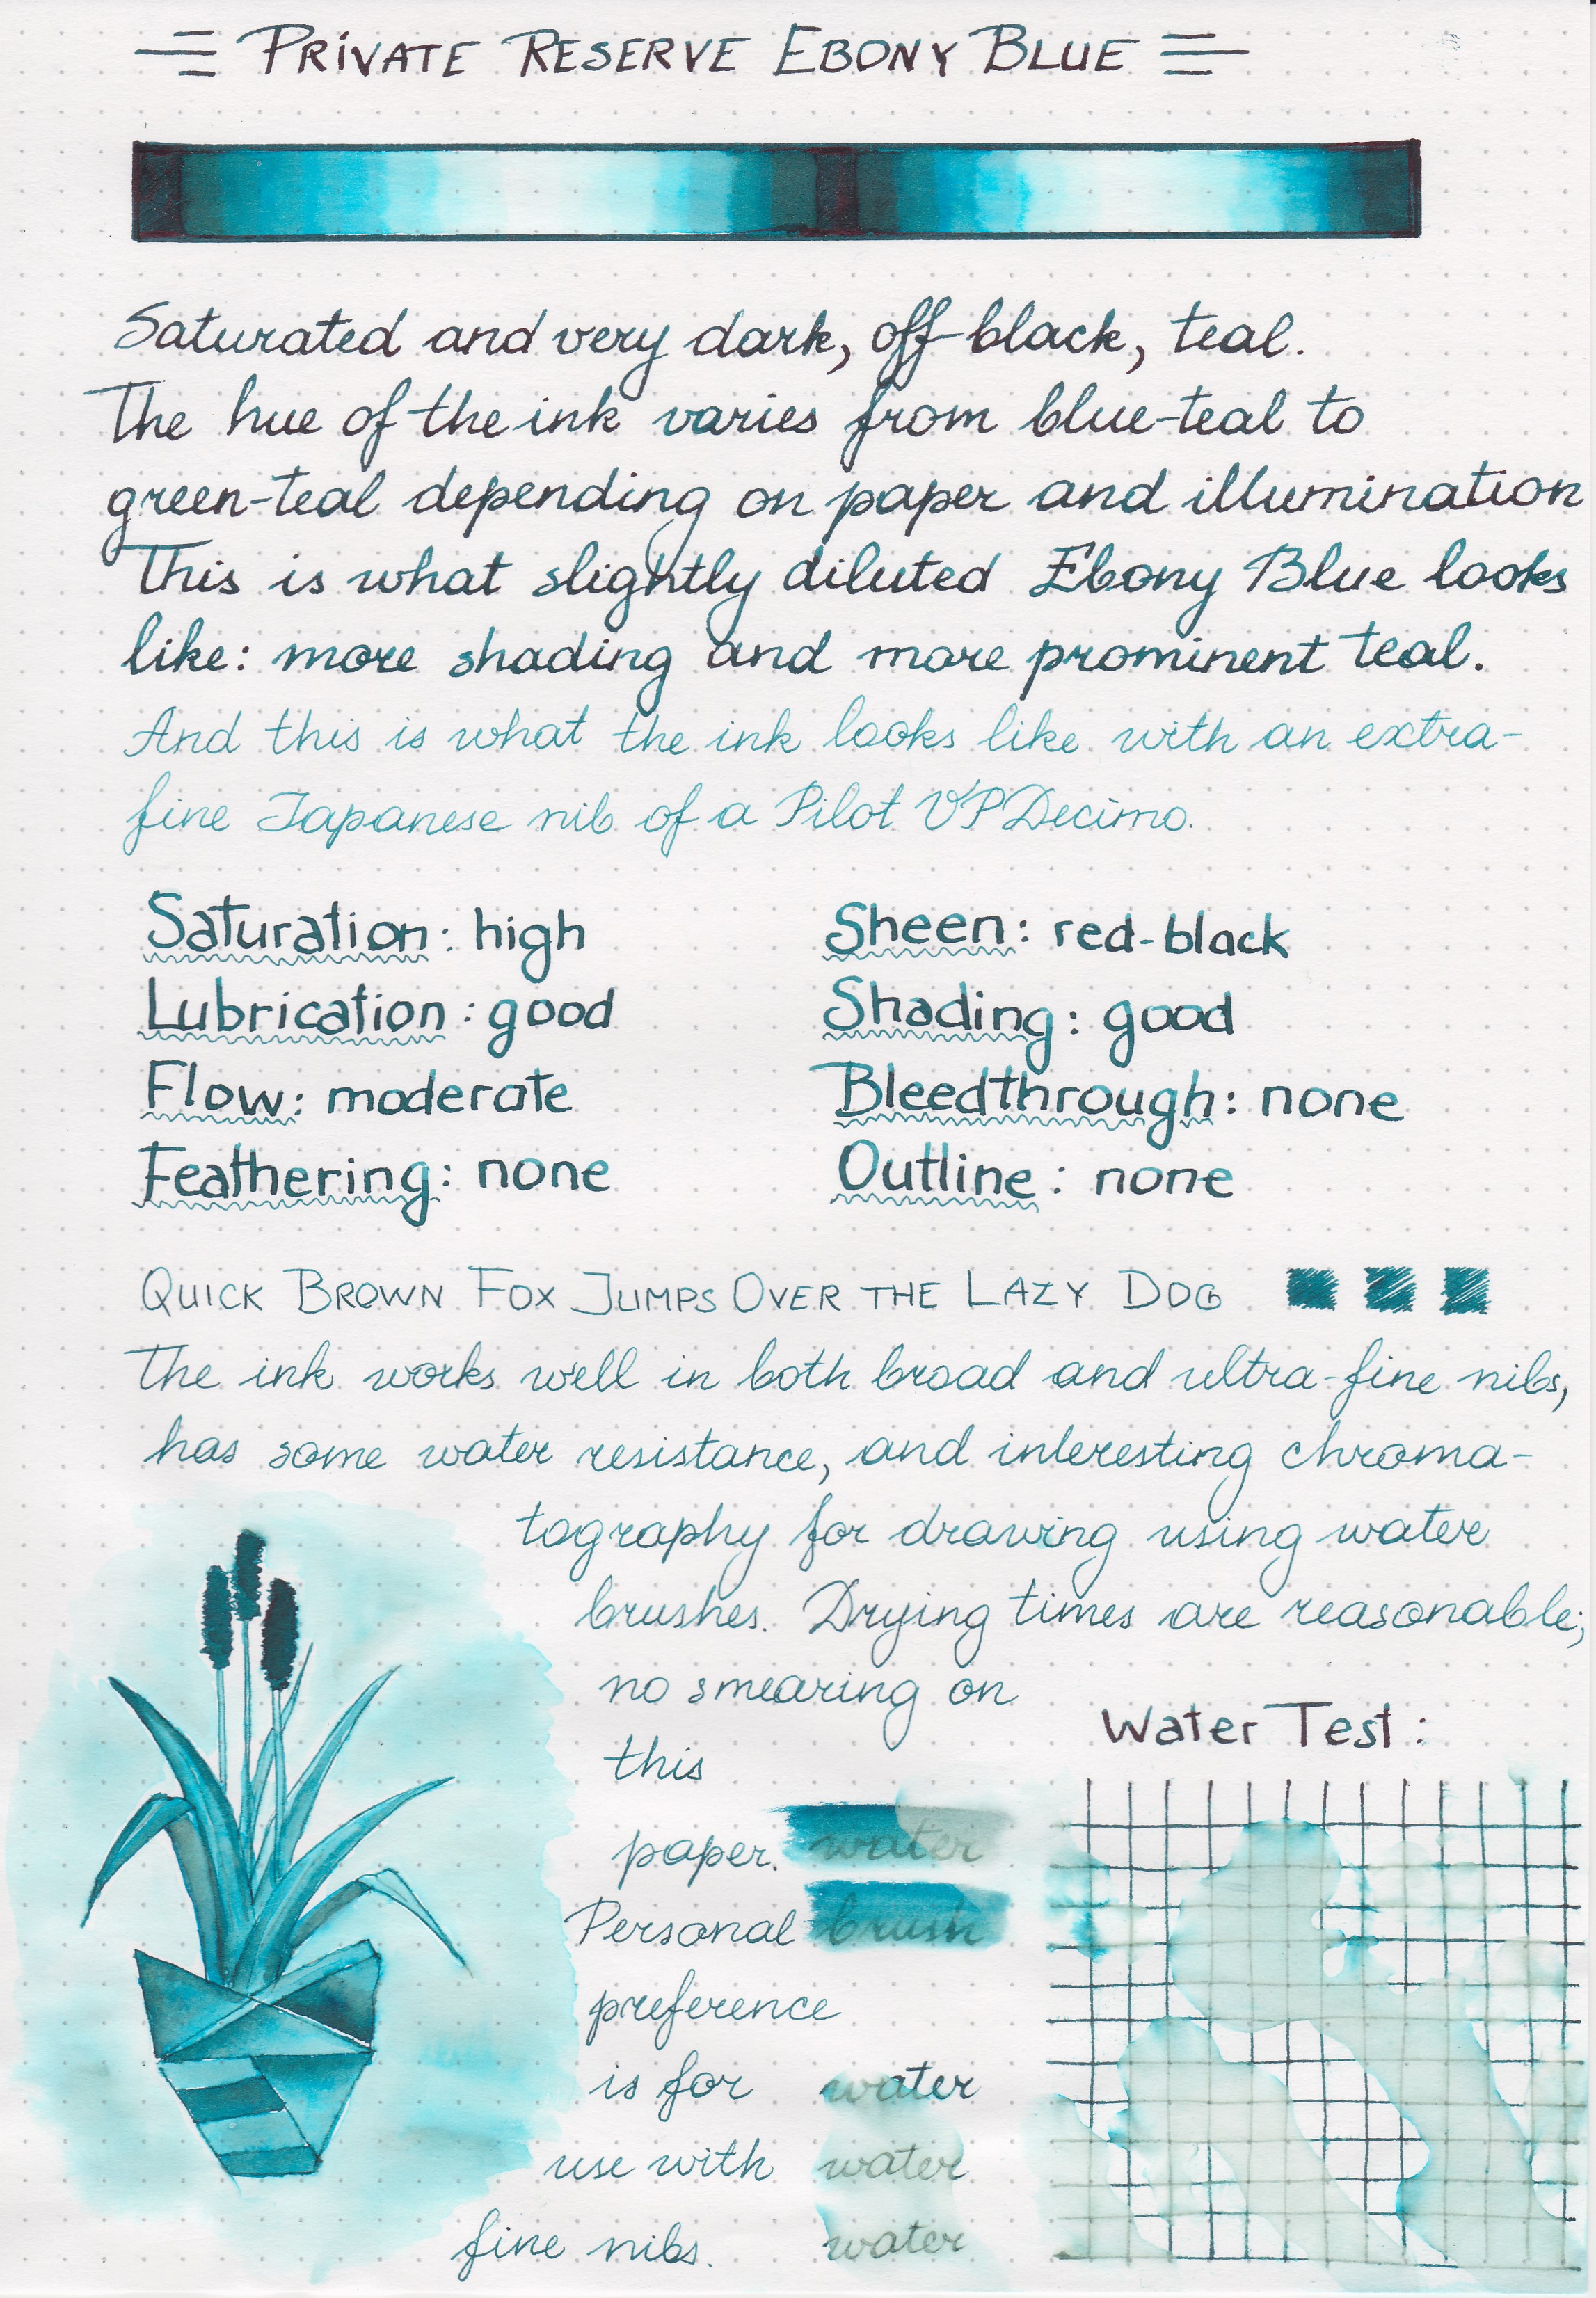 PRIVATE RESERVE EBONY BLUE
Saturated and very dark, off-black, teal.
The hue of the ink varies from blue-teal to
green-teal depending on paper and illumination
This is what slightly diluted Ebony Blue looks
like: more shading and more prominent teal.
And this is what the ink looks like with an extra-
fine Japanese nib of a Pilot VP Decimo.
Saturation: high
Lubrication: good
Flow: moderate
Feathering: none
Sheen: red-black
Shading: good
Bleedthrough: none
Outline: none
QUICK BROWN FOX JUMPS OVER THE LAZY DOG
The ink works well in both broad and ultra-fine nibs,
has some water resistance, and interesting chroma-
tography for drawing using water
brushes. Drying times are reasonable;
no smearing on
this
paper.
Personal
preference
is for
use with
fine nibs.
water
brush
water
water
water
Water Test: